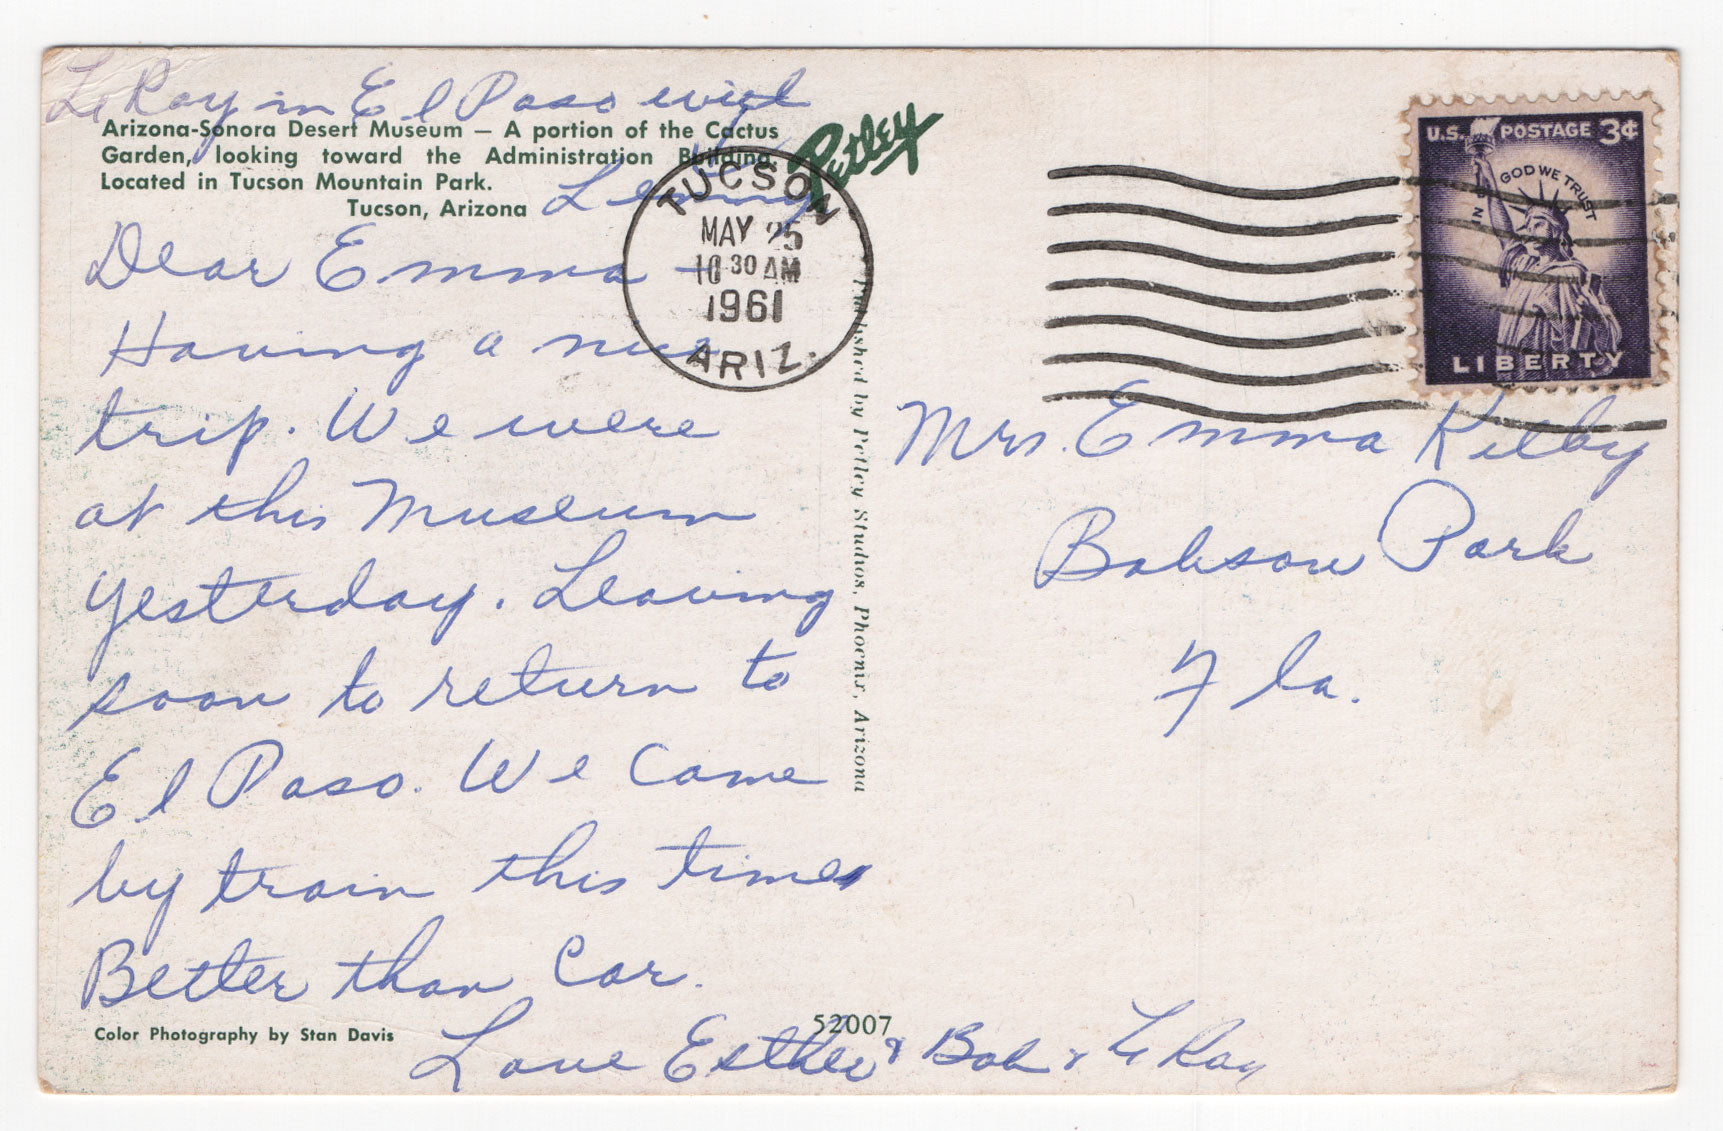 LeRoy in El Paso with
Lenny
Arizona-Sonora Desert Museum — A portion of the Cactus
Garden, looking toward the Administration Building.
Located in Tucson Mountain Park.
Tucson, Arizona
Petley
Dear Emma –
Having a nice
trip. We were
at this Museum
yesterday. Leaving
soon to return to
El Paso. We came
by train this time
Better than Car.
Love Esther & Bob & LeRoy
Color Photography by Stan Davis
52007
Published by Petley Studios, Phoenix, Arizona
TUCSON
MAY 25
10 30 AM
1961
ARIZ.
U.S. POSTAGE 3¢
IN GOD WE TRUST
LIBERTY
Mrs. Emma Kilby
Babson Park
Fla.